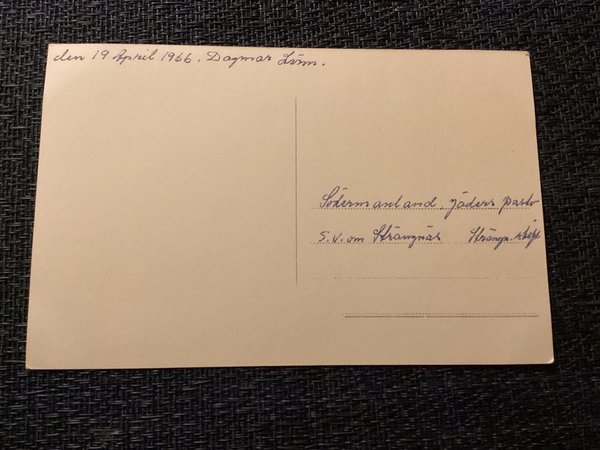 den 19 April 1966. Dagmar Linn.
Södermanland, Jäders pasto
S.V. om Strängnäs Strängn. stift